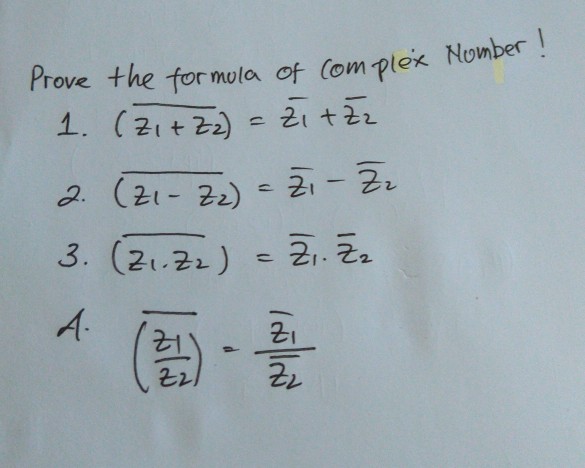 Prove the formula of Complex Number !
1. (\overline{z1 + z2}) = \overline{z1} + \overline{z2}
2. (\overline{z1 - z2}) = \overline{z1} - \overline{z2}
3. (\overline{z1 . z2}) = \overline{z1} . \overline{z2}
4. \overline{(\frac{z1}{z2})} = \frac{\overline{z1}}{\overline{z2}}